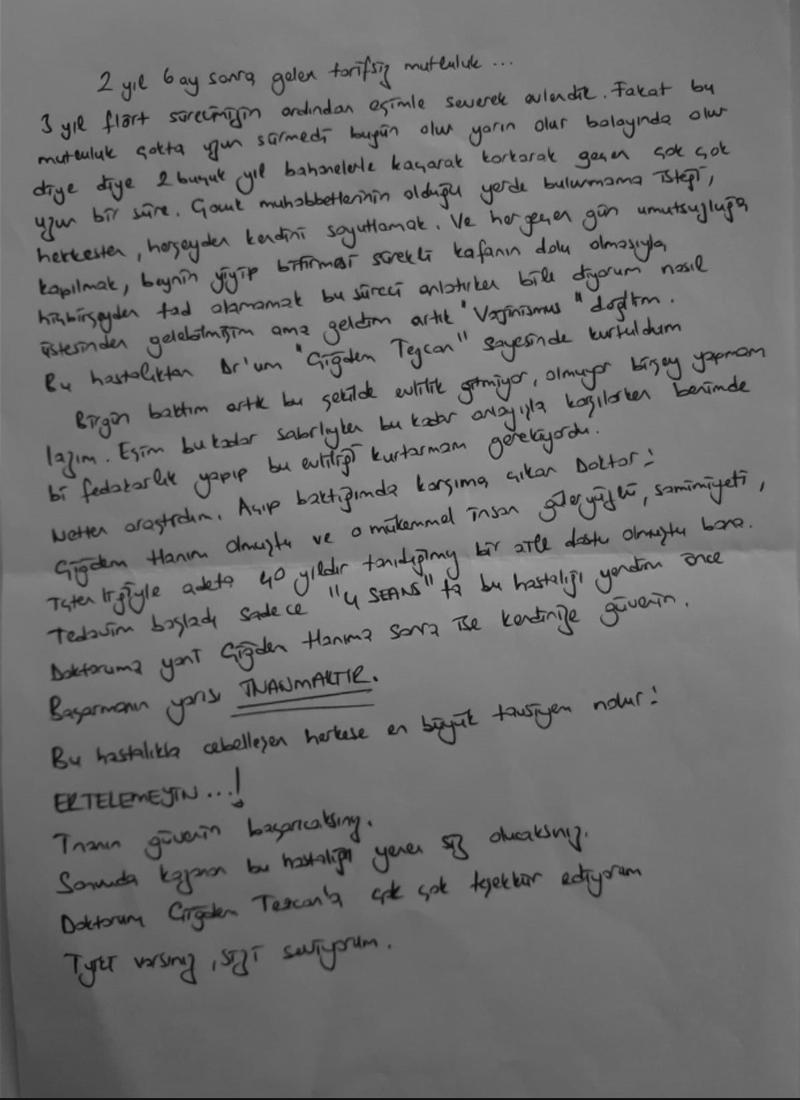 2 yıl 6 ay sonra gelen tarifsiz mutluluk ...
3 yıl flört sürecimizin ardından eşimle severek evlendik. Fakat bu
mutluluk çokta uzun sürmedi bugün olur yarın olur balayında olur
diye diye 2 buçuk yıl bahanelerle kaçarak korkarak geçen çok çok
uzun bir süre. Çocuk muhabbetlerinin olduğu yerde bulunmama isteği,
herkesten, herşeyden kendini soyutlamak. Ve her geçen gün umutsuzluğa
kapılmak, beynin yiyip bitirmesi sürekli kafanın dolu olmasıyla
hiçbirşeyden tad alamamak bu süreci anlatırken bile diyorum nasıl
üstesinden gelebilmişim ama geldim artık "Vajinismus" değilim.
Bu hastalıktan Dr'um "Çiğdem Tezcan" sayesinde kurtuldum
Birgün baktım artık bu şekilde evlilik gitmiyor, olmuyor birşey yapmam
lazım. Eşim bu kadar sabırlıyken bu kadar anlayışla karşılarken benimde
bi fedakarlık yapıp bu evliliği kurtarmam gerekiyordu.
Netten araştırdım. Açıp baktığımda karşıma çıkan Doktor!
Çiğdem Hanım olmuştu ve o mükemmel insan güleryüzlü, samimiyeti,
içten ilgiyle adeta 40 yıldır tanıdığımız bir aile dostu olmuştu bana.
Tedavim başladı sadece "4 SEANS" ta bu hastalığı yendim önce
Doktoruma yani Çiğdem Hanıma sonra ise kendinize güvenin.
Başarmanın yarısı İNANMAKTIR.
Bu hastalıkla cebelleşen herkese en büyük tavsiyem nolur!
ERTELEMEYİN...!
İnanın güvenin başarıcaksınız.
Sonunda kazanan bu hastalığı yenen siz olucaksınız.
Doktorum Çiğdem Tezcan'a çok çok teşekkür ediyorum
İyiki varsınız, sizi seviyorum.